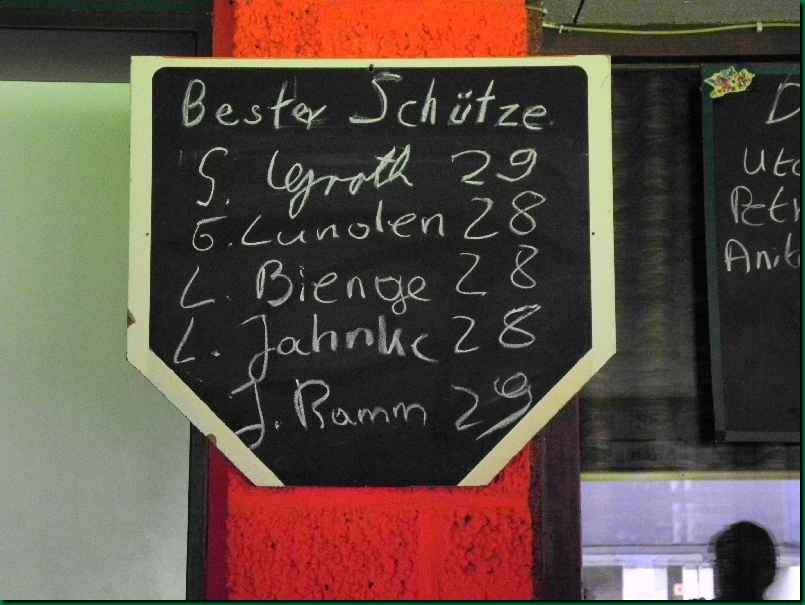 Bester Schütze
G. Legroth 29
G. Lunden 28
L. Bienge 28
L. Jahnke 28
J. Ramm 29
D
Ute
Petr
Anit